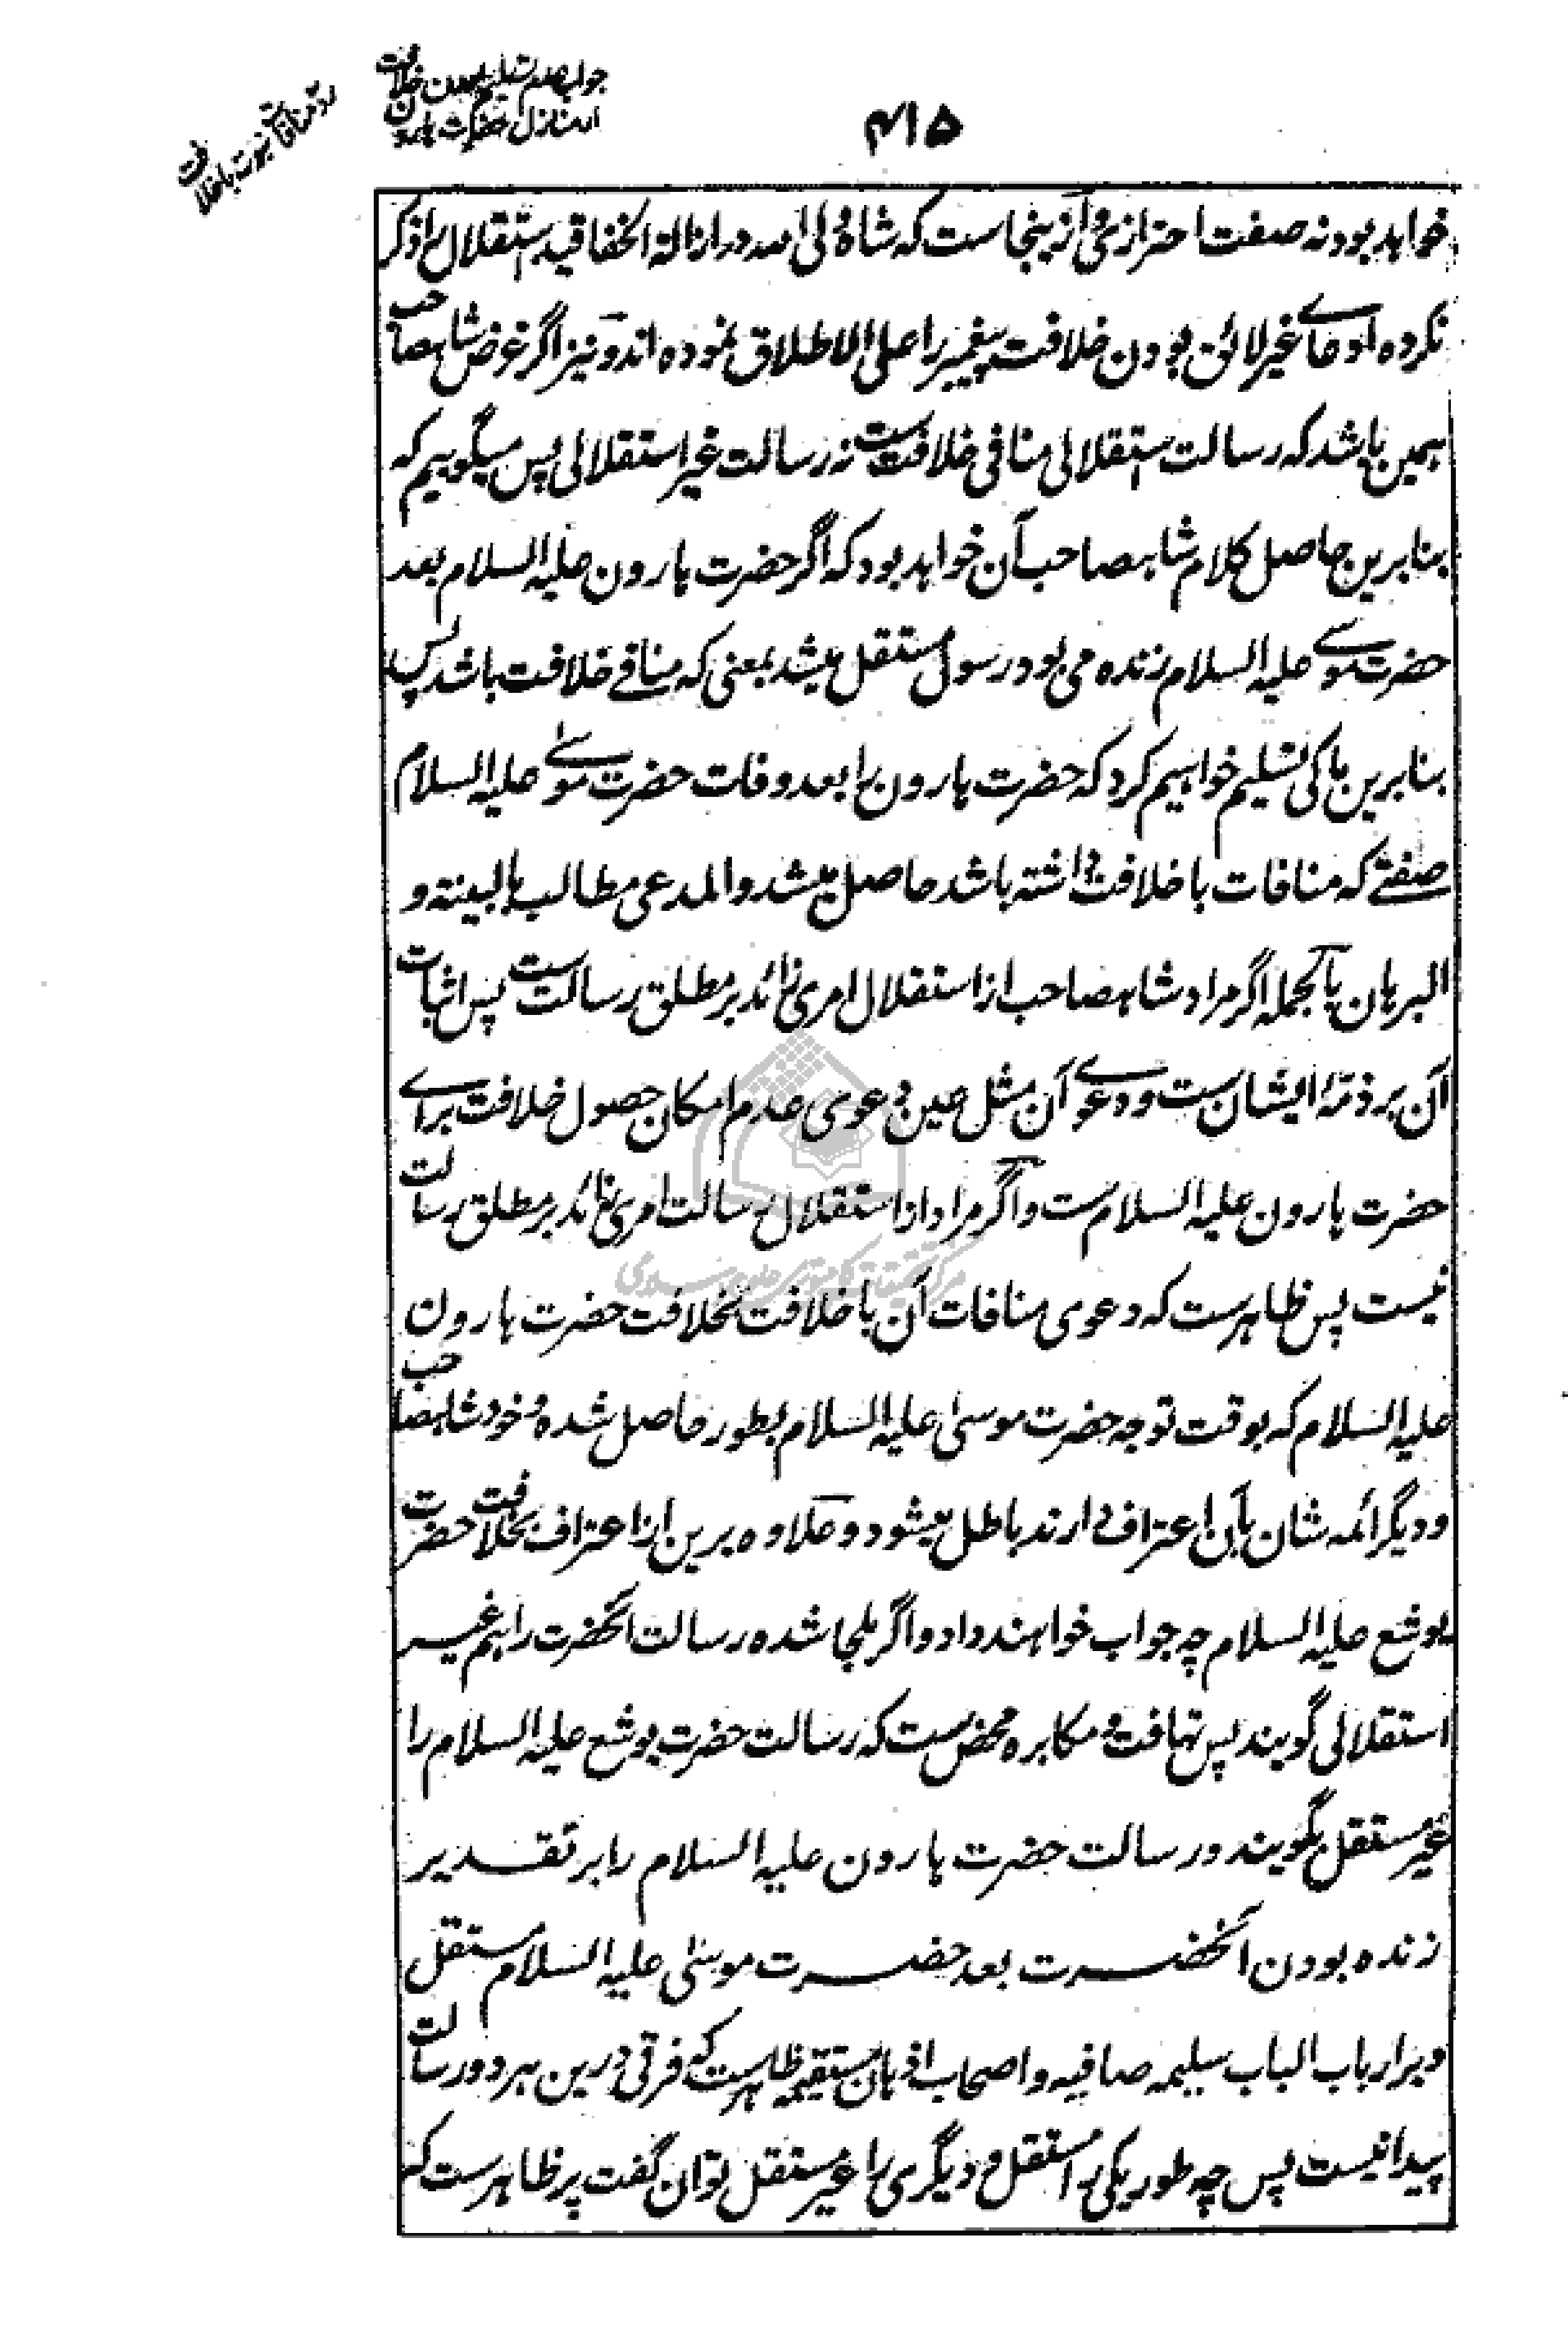 جواب عدم تسلیم بودن خلافت
از منازل حضرت هارون
رد منافات نبوت با خلافت
۴۱۵
خواهد بود نه صفت احترازی و از ینجاست که شاه ولی الله در ازالة الخفا قید استقلال را ذکر
نکرده ادعاے غیر لائق بودن خلافت پیغمبر را علی الاطلاق نموده اند و نیز اگر غرض شاهصاحب
همین باشد که رسالت استقلالی منافی خلافت ست نه رسالت غیر استقلالی پس میگوییم که
بنابرین حاصل کلام شاهصاحب آن خواهد بود که اگر حضرت هارون علیه السلام بعد
حضرت موسے علیه السلام زنده می بود رسول مستقل میشد بمعنی که منافے خلافت باشد پس
بنابرین ما کی تسلیم خواهیم کرد که حضرت هارون را بعد وفات حضرت موسے علیه السلام
صفتے که منافات با خلافت داشته باشد حاصل میشد و المدعی مطالب بالبینة و
البرهان بالجمله اگر مراد شاهصاحب از استقلال امری زائد بر مطلق رسالت ست پس اثبات
آن بر ذمهٔ ایشان ست و دعوے آن مثل عین دعوی عدم امکان حصول خلافت براے
حضرت هارون علیه السلام ست و اگر مراد از استقلال رسالت امری زائد بر مطلق رسالت
نیست پس ظاهرست که دعوی منافات آن با خلافت بخلافت حضرت هارون
علیه السلام که بوقت توجه حضرت موسیٰ علیه السلام بطور حاصل شده و خود شاهصاحب
و دیگر ائمه شان بآن اعتراف دارند باطل میشود و علاوه برین از اعتراف بخلافت حضرت
یوشع علیه السلام چه جواب خواهند داد و اگر ملجا شده رسالت آنحضرت را هم غیر
استقلالی گویند پس تهافت و مکابره محض ست که رسالت حضرت یوشع علیه السلام را
غیر مستقل بگویند و رسالت حضرت هارون علیه السلام را بر تقدیر
زنده بودن آنحضرت بعد حضرت موسیٰ علیه السلام مستقل
و بر ارباب الباب سلیمه صافیه و اصحاب اذهان مستقیمه ظاهرست که فرقی درین هر دو رسالت
پیدا نیست پس چه طور یکی را مستقل و دیگری را غیر مستقل توان گفت پر ظاهرست که